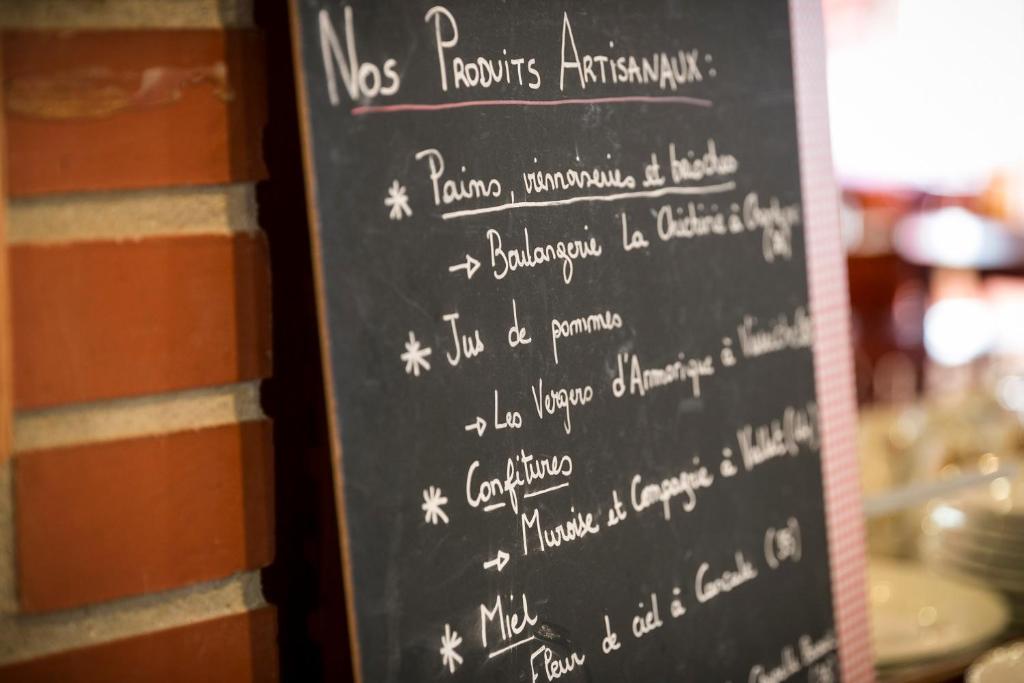 Nos Produits Artisanaux :
* Pains, viennoiseries et brioches
→ Boulangerie La à
* Jus de pommes
→ Les Vergers d'Armorique à
* Confitures
→ Muroise et Compagnie à Vallet (44)
* Miel
Fleur de ciel à Cancale (35)